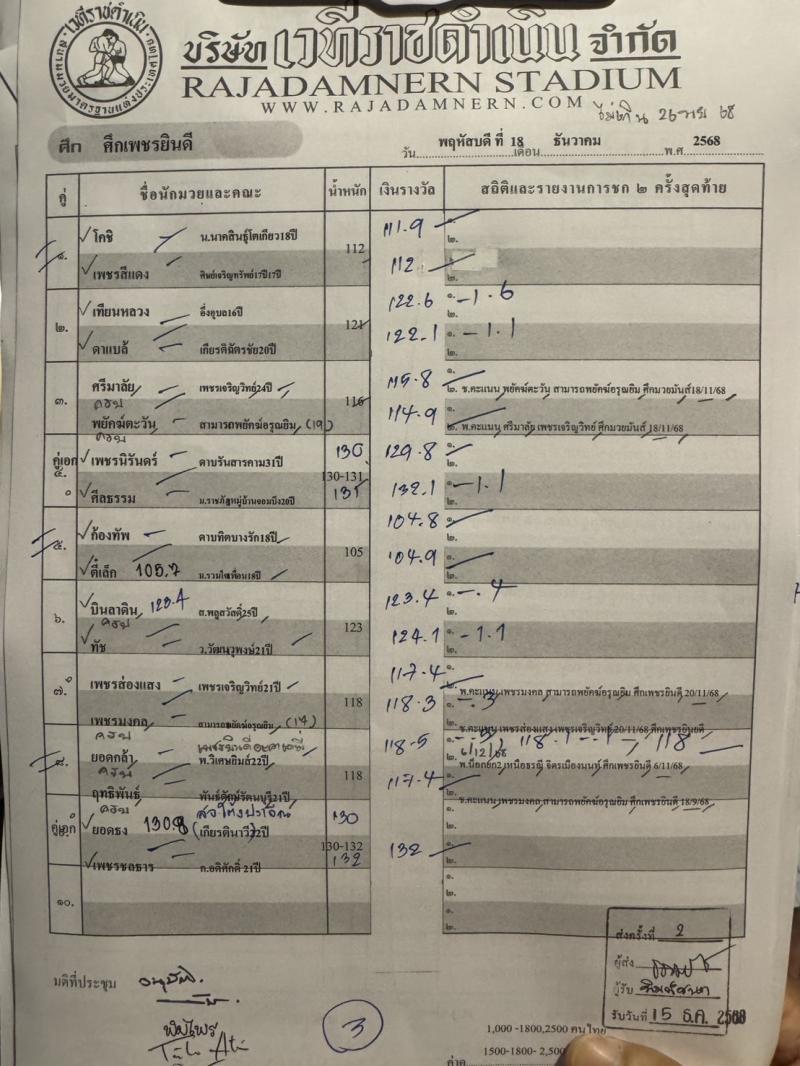 บริษัท เวทีราชดำเนิน จำกัด
RAJADAMNERN STADIUM
WWW.RAJADAMNERN.COM
ศึก ศึกเพชรยินดี
วัน พฤหัสบดี ที่ 18 เดือน ธันวาคม พ.ศ. 2568
คู่ ชื่อนักมวยและคณะ น้ำหนัก เงินรางวัล สถิติและรายงานการชก ๒ ครั้งสุดท้าย
๑. โคชิ น.นาคสินธุ์โตเกียว18ปี 112 111.9 ๑.
๒.
เพชรสีแดง ศิษย์เจริญทรัพย์17ปี17ปี 112 ๑.
๒.
๒. เทียนหลวง อึ่งอุบล16ปี 121 122.6 ๑. -1.6
๒.
ดาแบล้ เกียรติฉัตรชัย20ปี 122.1 ๑. -1.1
๒.
๓. ศรีมาลัย เพชรเจริญวิทย์24ปี 116 115.8 ๑.
๒. ช.คะแนน พยัคฆ์ตะวัน สามารถพยัคฆ์อรุณยิม ศึกมวยมันส์18/11/68
พยัคฆ์ตะวัน สามารถพยัคฆ์อรุณยิม (19) 114.9 ๑.
๒. พ.คะแนน ศรีมาลัย เพชรเจริญวิทย์ ศึกมวยมันส์ 18/11/68
คู่เอก เพชรนิรันดร์ ดาบรันสารคาม31ปี 130 129.8 ๑.
๒.
130-131
ศีลธรรม ม.ราชภัฏหมู่บ้านจอมบึง20ปี 131 132.1 ๑. -1.1
๒.
๕. ก้องทัพ ดาบทิตบางรัก18ปี 105 104.8 ๑.
๒.
ตี๋เล็ก 105.7 ม.รวมใจเพื่อน18ปี 104.9 ๑.
๒.
๖. บินลาดิน 123.4 ส.พลูสวัสดิ์25ปี 123 123.4 ๑. -.4
๒.
ทัช ว.วัฒนวุพงษ์21ปี 124.1 ๑. -1.1
๒.
๗. เพชรส่องแสง เพชรเจริญวิทย์21ปี 118 117.4 ๑.
๒. พ.คะแนน เพชรมงคล สามารถพยัคฆ์อรุณยิม ศึกเพชรยินดี 20/11/68
เพชรมงคล สามารถพยัคฆ์อรุณยิม (17) 118.3 ๑. -.3
๒. ช.คะแนน เพชรส่องแสง เพชรเจริญวิทย์ 20/11/68 ศึกเพชรยินดี
๘. ยอดกล้า พ.วิเศษยิมส์22ปี 118 118.5 118.1 118
6/12/68
๒. พ.น็อกยก2 เหนือธรณี จิตรเมืองนนท์ ศึกเพชรยินดี 6/11/68
ฤทธิพันธุ์ พันธุ์ศักดิ์รัตนบุรี21ปี 117.4 ๑.
๒. ช.คะแนน เพชรมงคล สามารถพยัคฆ์อรุณยิม ศึกเพชรยินดี 18/9/68
คู่เอก ยอดธง 130.8 (เกียรตินาวี)22ปี 130 ๑.
๒.
130-132
เพชรชลธาร ก.อดิศักดิ์ 21ปี 132 132 ๑.
๒.
๑๐. ๑.
๒.
๑.
๒.
มติที่ประชุม อนุมัติ
3
ส่งครั้งที่ 2
ผู้ส่ง
ผู้รับ
รับวันที่ 15 ธ.ค. 2568
1,000 -1800,2500 คนไทย
1500-1800- 2,500